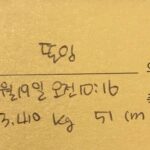 또잉
월 19일 오전 10:16
3.410 kg 51 cm